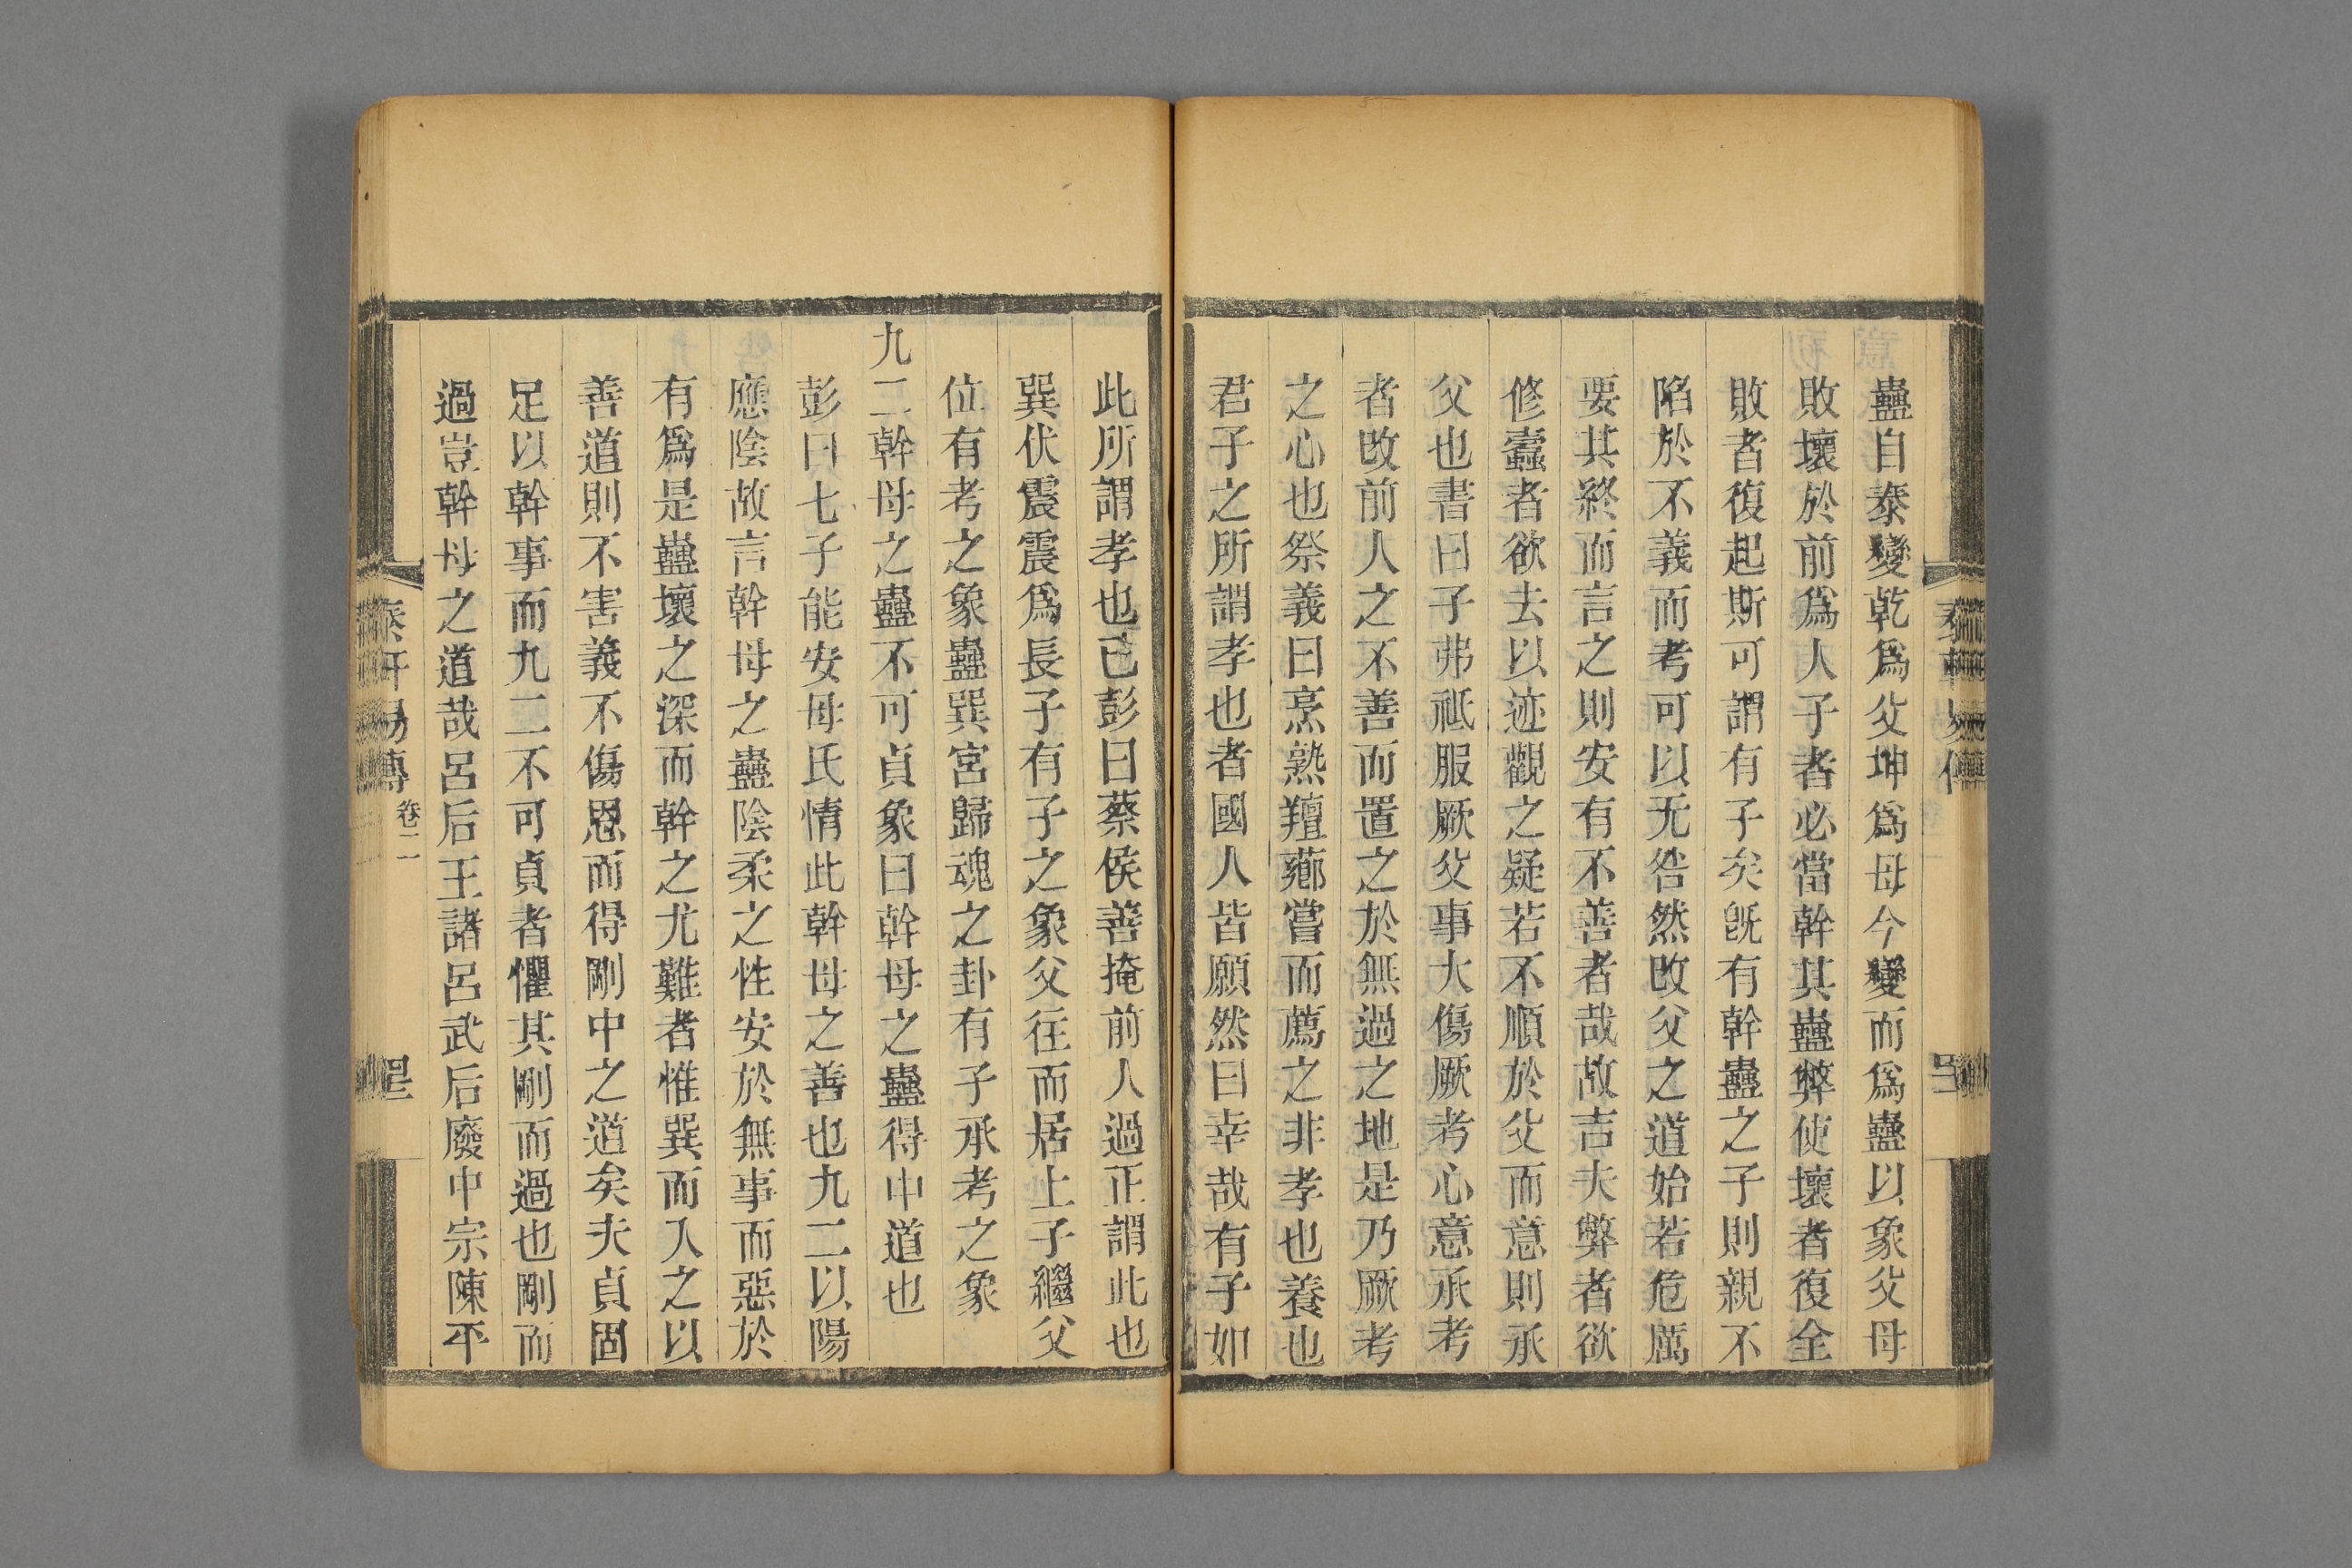 蠱自泰變乾爲父坤爲母今變而爲蠱以象父母
敗壞於前爲人子者必當幹其蠱弊使壞者復全
敗者復起斯可謂有子矣旣有幹蠱之子則親不
陷於不義而考可以无咎然改父之道始若危厲
要其終而言之則安有不善者哉故吉夫弊者欲
修蠹者欲去以迹觀之疑若不順於父而意則承
父也書曰子弗祗服厥父事大傷厥考心意承考
者改前人之不善而置之於無過之地是乃厥考
之心也祭義曰烹熟羶薌嘗而薦之非孝也養也
君子之所謂孝也者國人皆願然曰幸哉有子如
此所謂孝也已彭曰蔡侯善掩前人過正謂此也
巽伏震震爲長子有子之象父往而居上子繼父
位有考之象蠱巽宮歸魂之卦有子承考之象
九二幹母之蠱不可貞象曰幹母之蠱得中道也
彭曰七子能安母氏情此幹母之善也九二以陽
應陰故言幹母之蠱陰柔之性安於無事而惡於
有爲是蠱壞之深而幹之尤難者惟巽而入之以
善道則不害義不傷恩而得剛中之道矣夫貞固
足以幹事而九二不可貞者懼其剛而過也剛而
過豈幹母之道哉呂后王諸呂武后廢中宗陳平
易傳 卷二